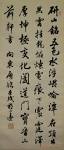 研山銘五色水浮崑崙潭在頂出
黑雲挂龍怪爍電痕下震霆澤
厚坤極變化闔道門寶晉山
前軒書